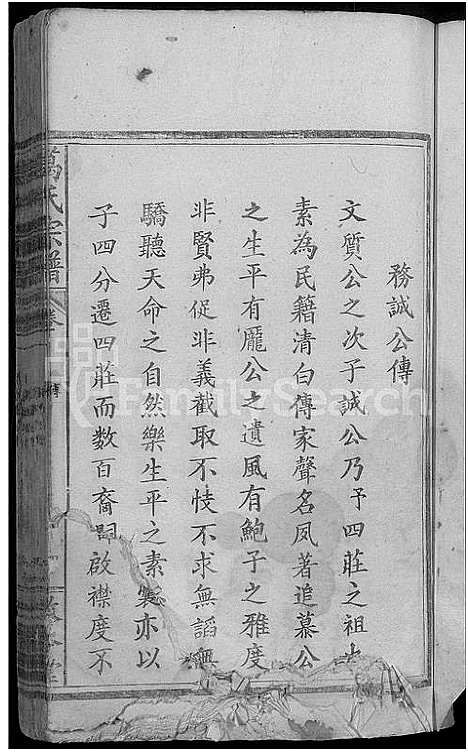 務誠公傳
文質公之次子誠公乃予四莊之祖也
素為民籍清白傳家聲名夙著追慕公
之生平有龐公之遺風有鮑子之雅度
非賢弗促非義截取不忮不求無諂無
驕聽天命之自然樂生平之素 亦以
子四分遷四莊而数百裔 啟襟度不
萬氏宗譜
卷
傳
FamilySearch